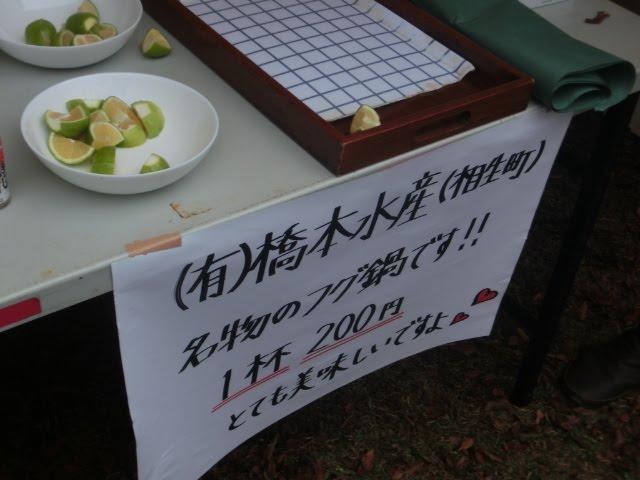 (有)橋本水産(相生町)
名物のフグ鍋です!!
1杯 200円
とても美味しいですよ